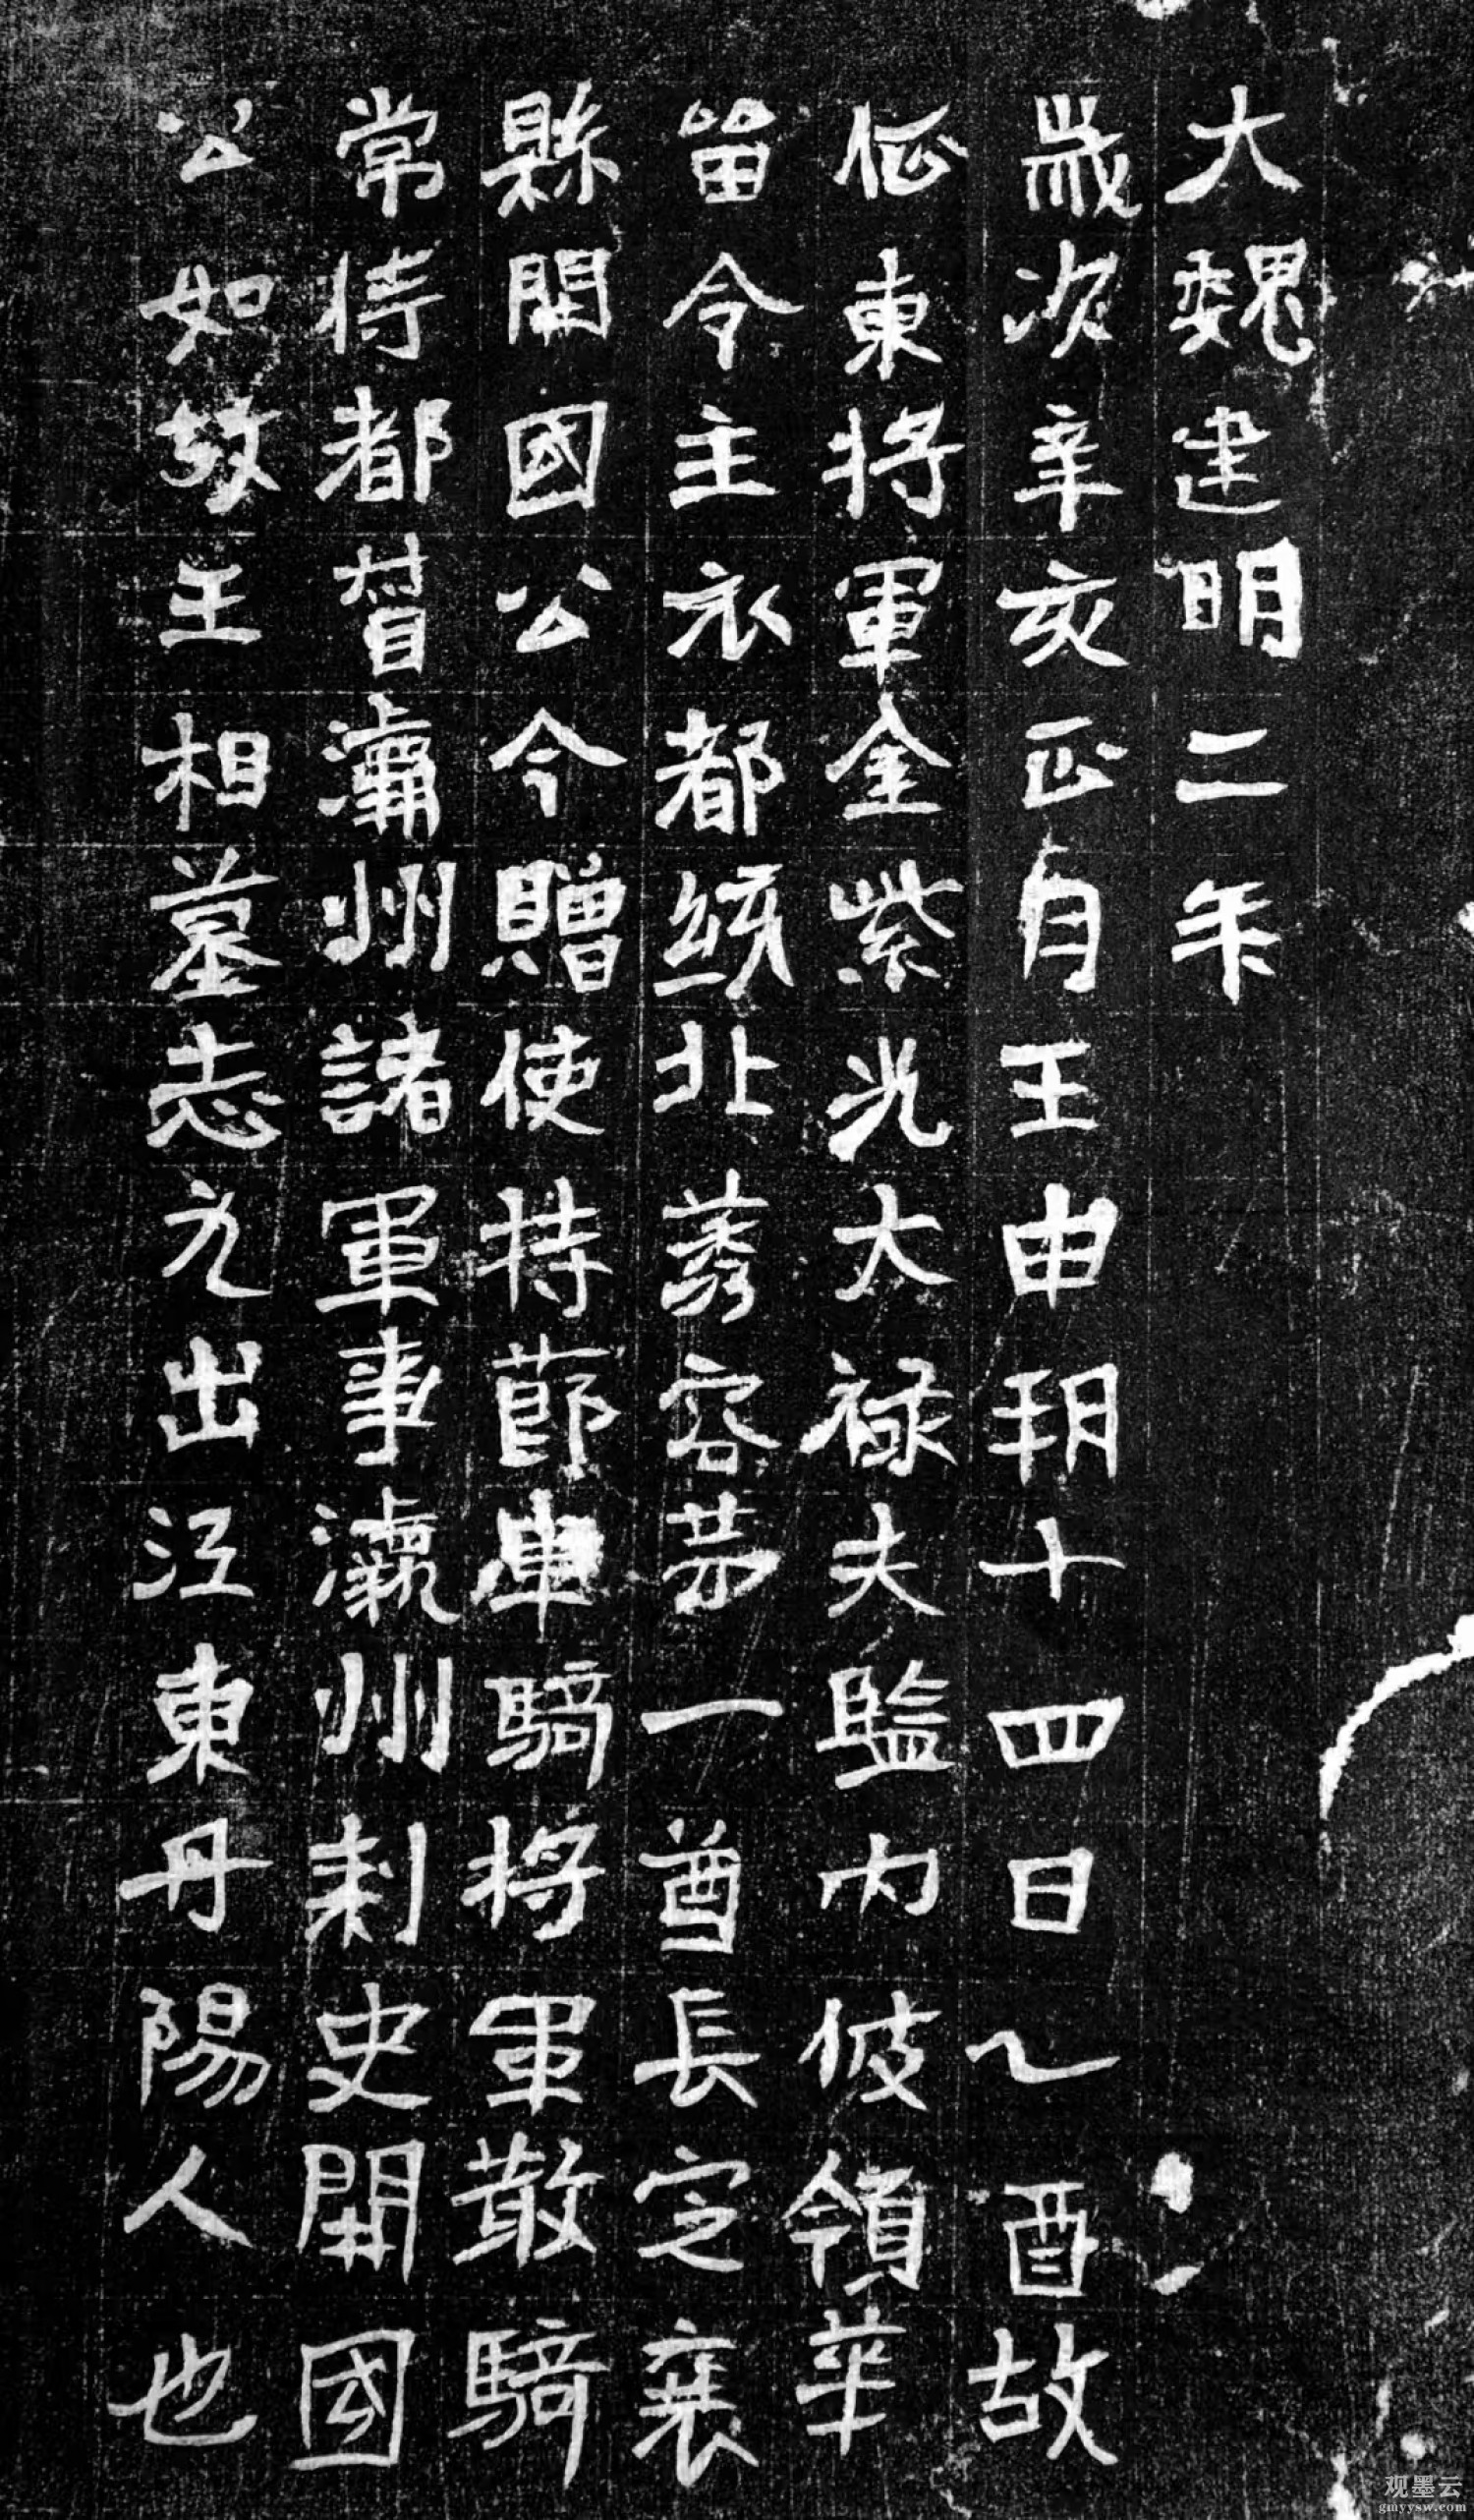 大魏建明二年
歲次辛亥正月壬申朔十四日乙酉故
征東將軍金紫光大祿夫監內彼領華
留令主衣都統北秀容第一酋長定襄
縣開國公今贈使持節車騎將軍散騎
常侍都督瀛州諸軍事瀛州刺史開國
公如故王相墓志元出江東丹陽人也
观墨云
gmyysw.com